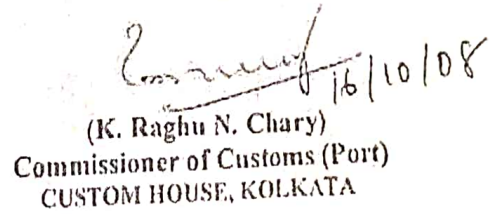 16/10/08
(K. Raghu N. Chary)
Commissioner of Customs (Port)
CUSTOM HOUSE, KOLKATA